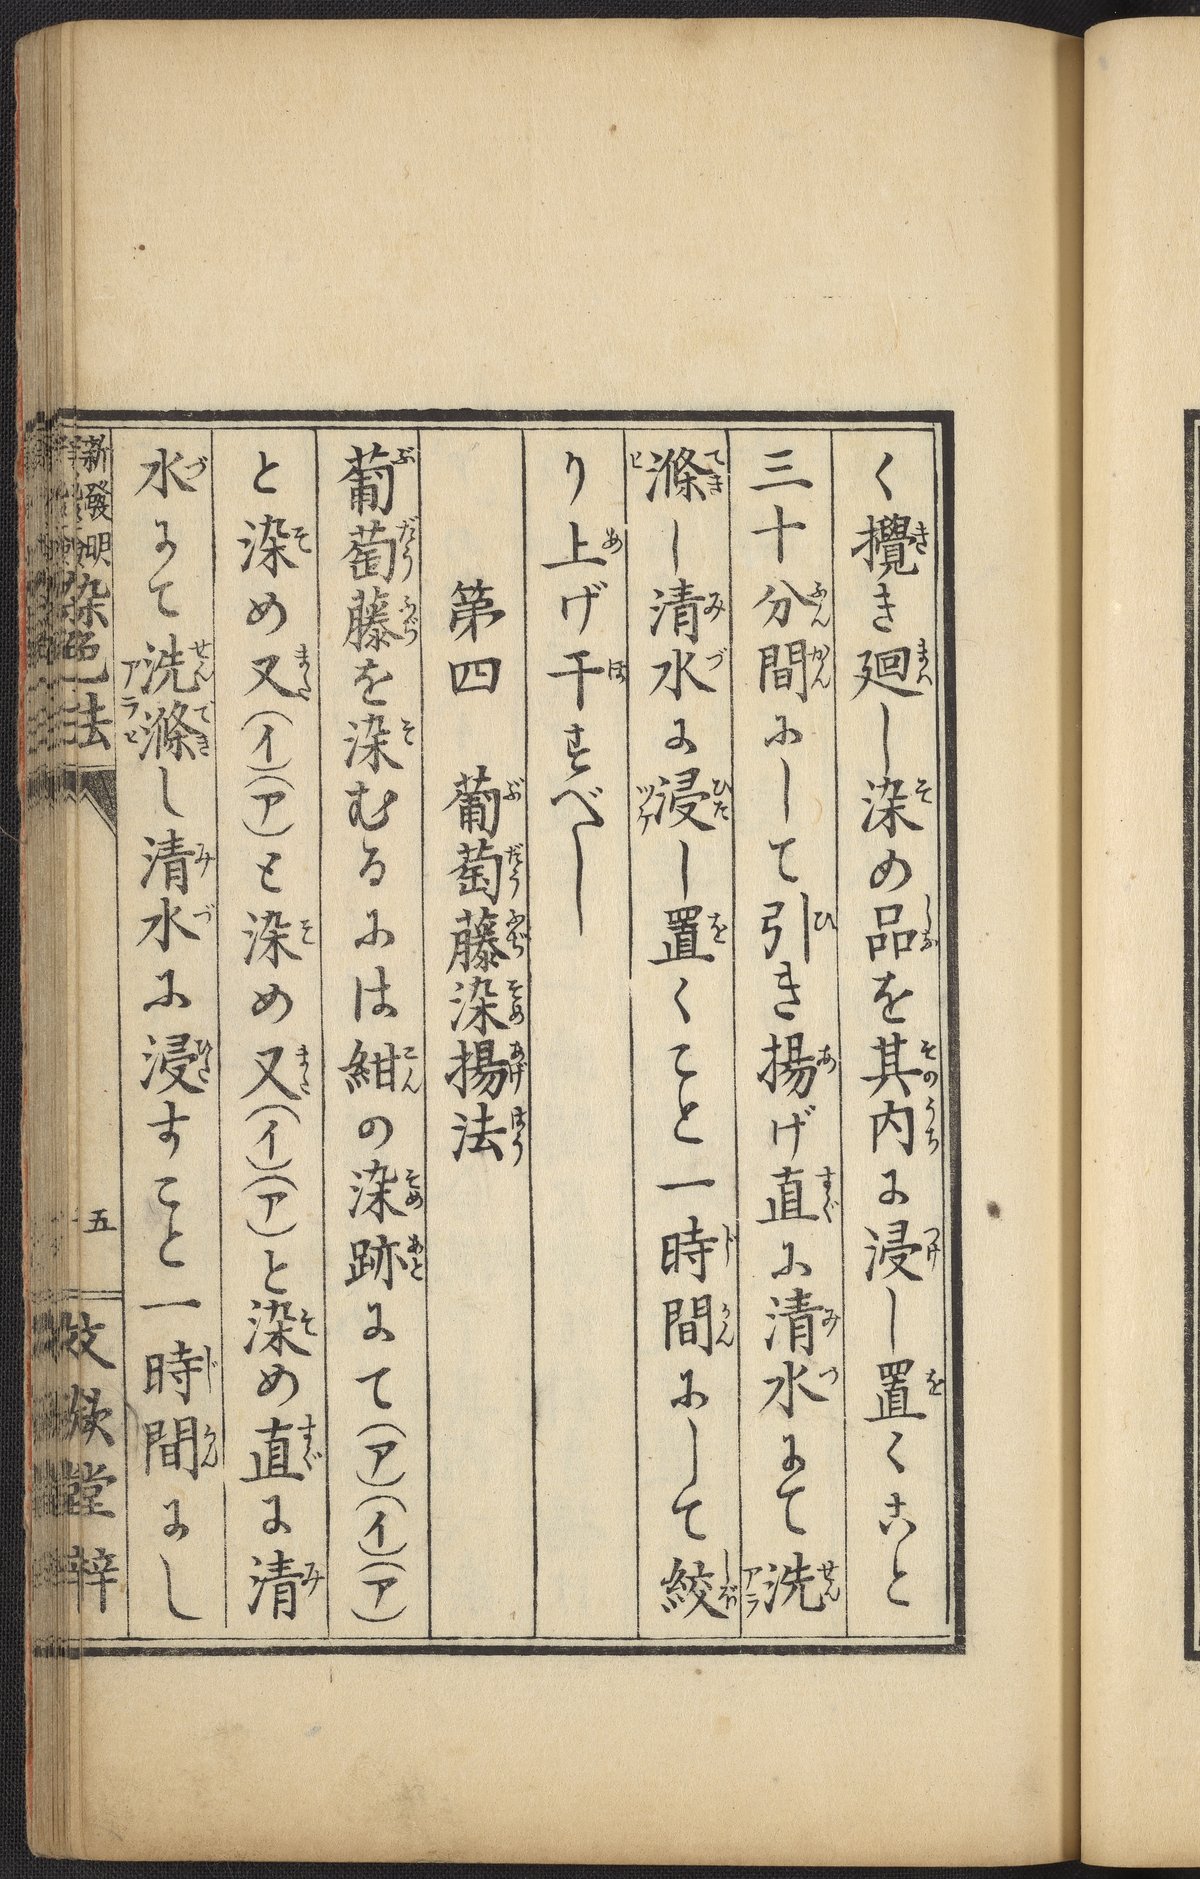 く攪き廻し染め品を其内に浸し置くこと
三十分間にして引き揚げ直に清水にて洗
滌し清水に浸し置くこと一時間にして絞
り上げ干すべし
第四 葡萄藤染揚法
葡萄藤を染むるには紺の染跡にて(ア)(イ)(ア)
と染め又(イ)(ア)と染め又(イ)(ア)と染め直に清
水にて洗滌し清水に浸すこと一時間にし
新發明染色法 五